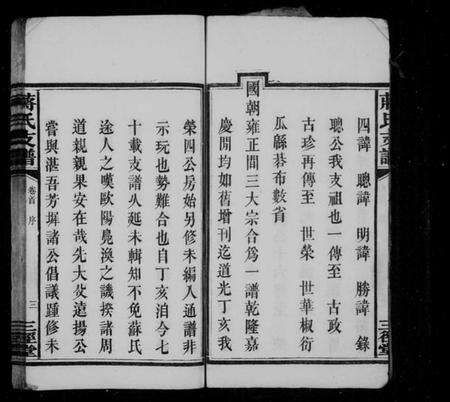 蔣氏支譜
四諱 聰諱 明諱 勝諱 錄
聰公我支祖也一傳至 古政
古珍再傳至 世榮 世華椒衍
瓜緜棊布數省
國朝雍正間三大宗合爲一譜乾隆嘉
慶閒均如舊增刊迄道光丁亥我
三徑堂
榮四公房始另修未編入通譜非
示玩也勢難合也自丁亥洎今七
十載支譜久延未輯知不免蘇氏
途人之嘆歐陽晃渙之譏揆諸周
道親親果安在哉先大父遠揚公
嘗與湛吾芳墀諸公倡議踵修未
蔣氏支譜
卷首 序
三
三徑堂